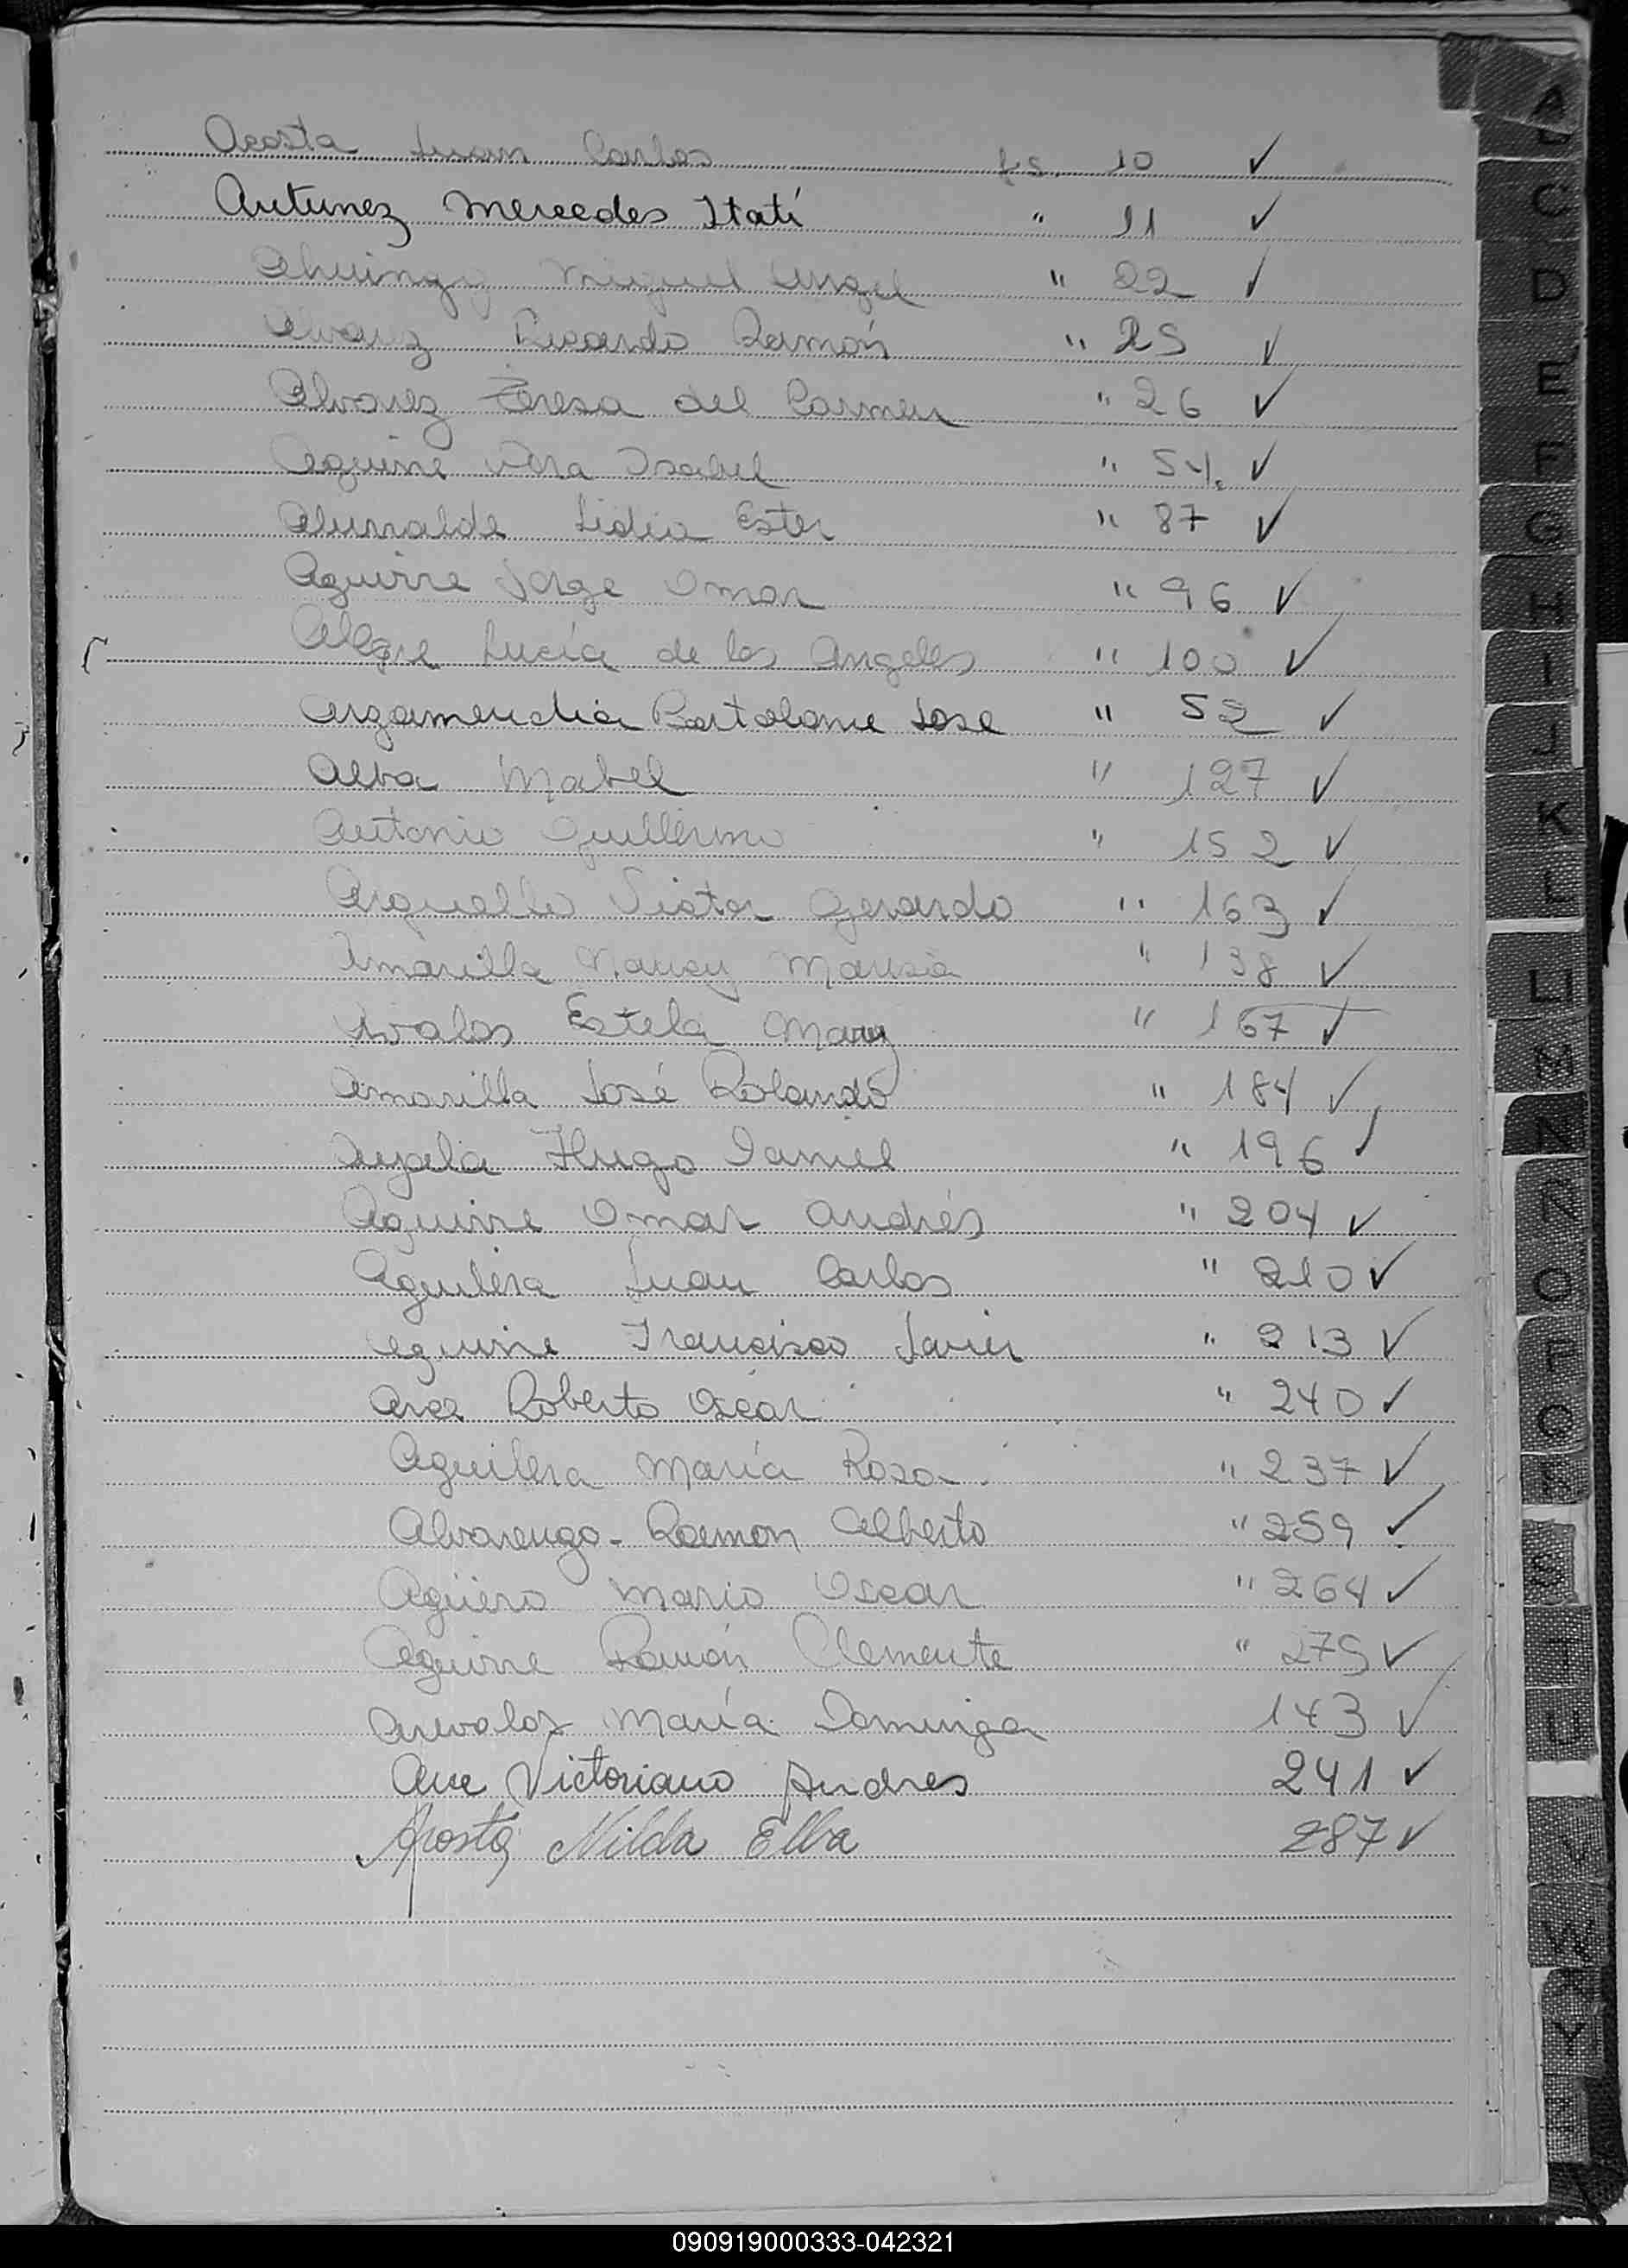 Acosta Juan Carlos fs. 10 ✓
Antunez Mercedes Itatí " 11 ✓
Miguel Angel " 22 ✓
Alvarez Ricardo Ramón " 25 ✓
Alvarez Teresa del Carmen " 26 ✓
Aguirre Vera Isabel " 54. ✓
Alurralde Lidia Ester " 87 ✓
Aguirre Jorge Omar " 96 ✓
Alegre Lucía de los Angeles " 100 ✓
Argamendia Bartolome Jose " 52 ✓
Alba Mabel " 127 ✓
Antonio Guillermo " 152 ✓
Arguello Victor Gerardo " 163 ✓
Amarilla Nancy " 138 ✓
Avalos Estela Mary " 167 ✓
Amarilla José Rolando " 184 ✓
Ayala Hugo Daniel " 196 ✓
Aguirre Omar Andrés " 204 ✓
Aguilera Juan Carlos " 210 ✓
Aguirre Francisco Javier " 213 ✓
Arce Roberto Oscar " 240 ✓
Aguilera María Rosa " 237 ✓
Alvarengo - Ramon Alberto " 259 ✓
Agüero Mario Oscar " 264 ✓
Aguirre Ramón Clemente " 275 ✓
Arevalos María Dominga 143 ✓
Arce Victoriano Andres 241 ✓
Acosta Nilda Elba 287 ✓
A
C
D
E
F
G
H
I
J
K
L
LL
M
N
Ñ
O
P
Q
R
S
T
U
V
W
Y
090919000333-042321